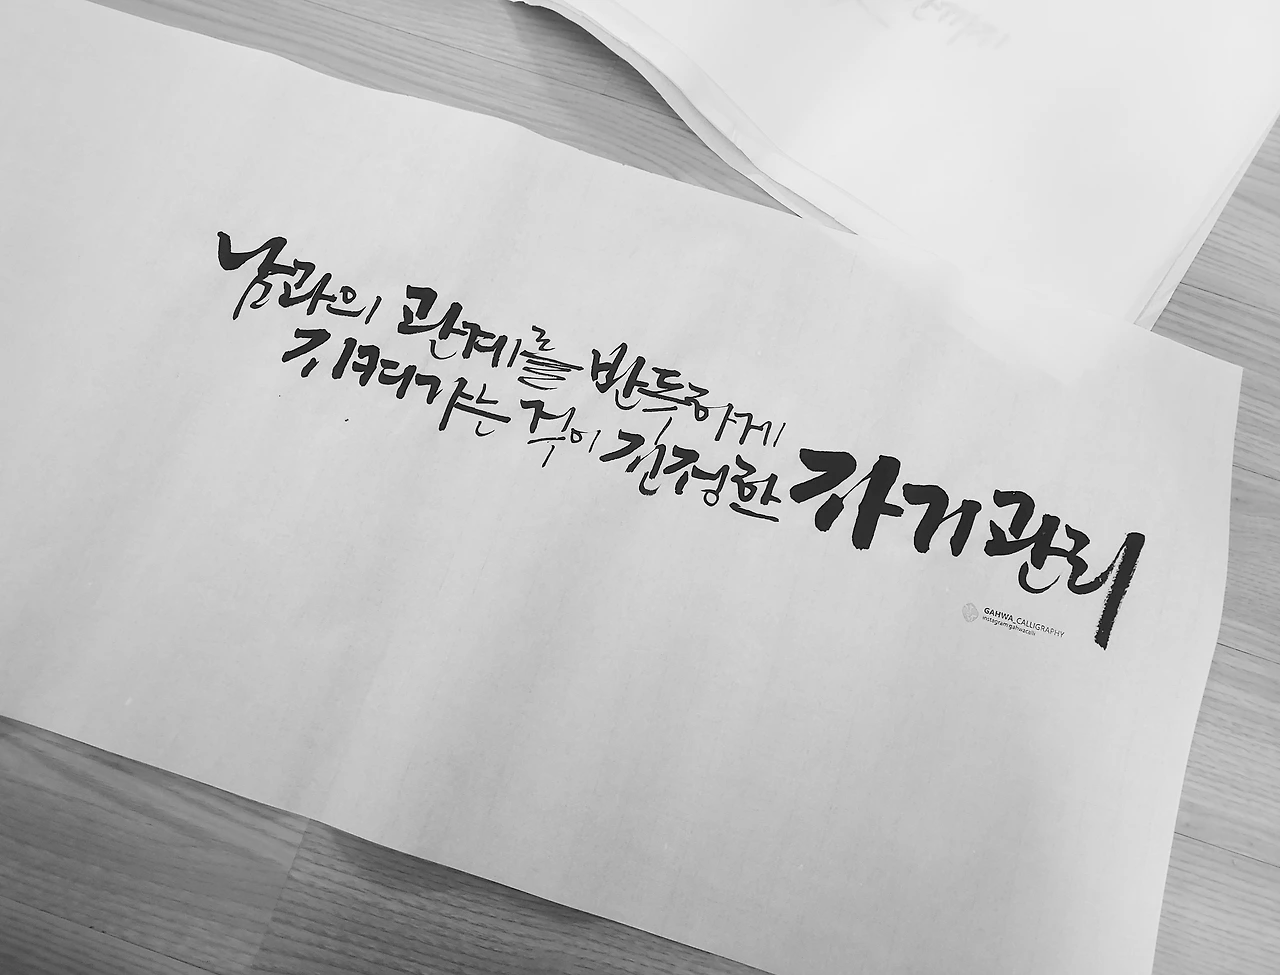 남과의 관계를 반듯하게
지켜가는 것이 진정한 자기관리
GAHWA_CALLIGRAPHY
instagram:gahwacalli